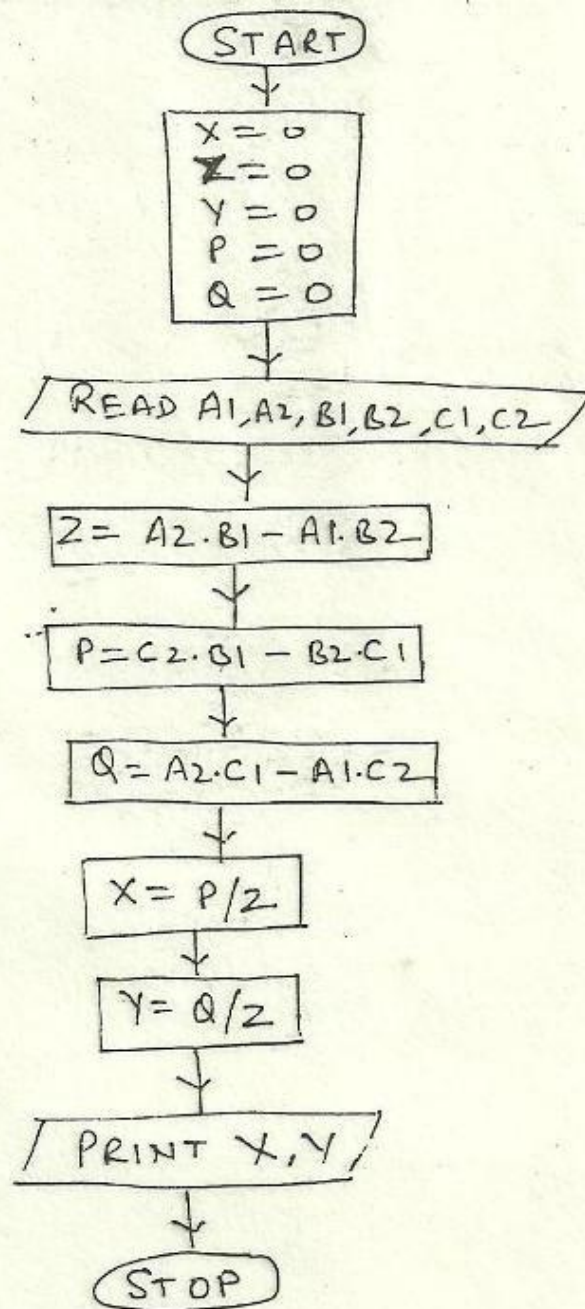 START
X = 0
Z = 0
Y = 0
P = 0
Q = 0
READ A1, A2, B1, B2, C1, C2
Z = A2·B1 - A1·B2
P = C2·B1 - B2·C1
Q = A2·C1 - A1·C2
X = P/Z
Y = Q/Z
PRINT X, Y
STOP